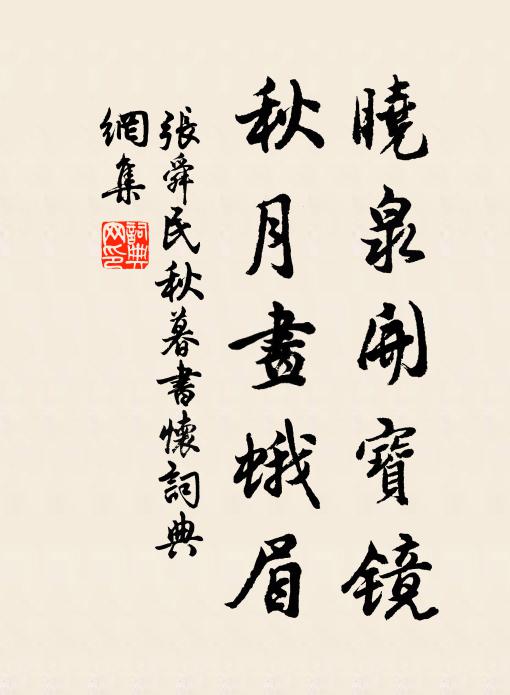 曉泉開寶镜
秋月畫蛾眉
張舜民秋暮書懷詞典
網集
詞典
网印